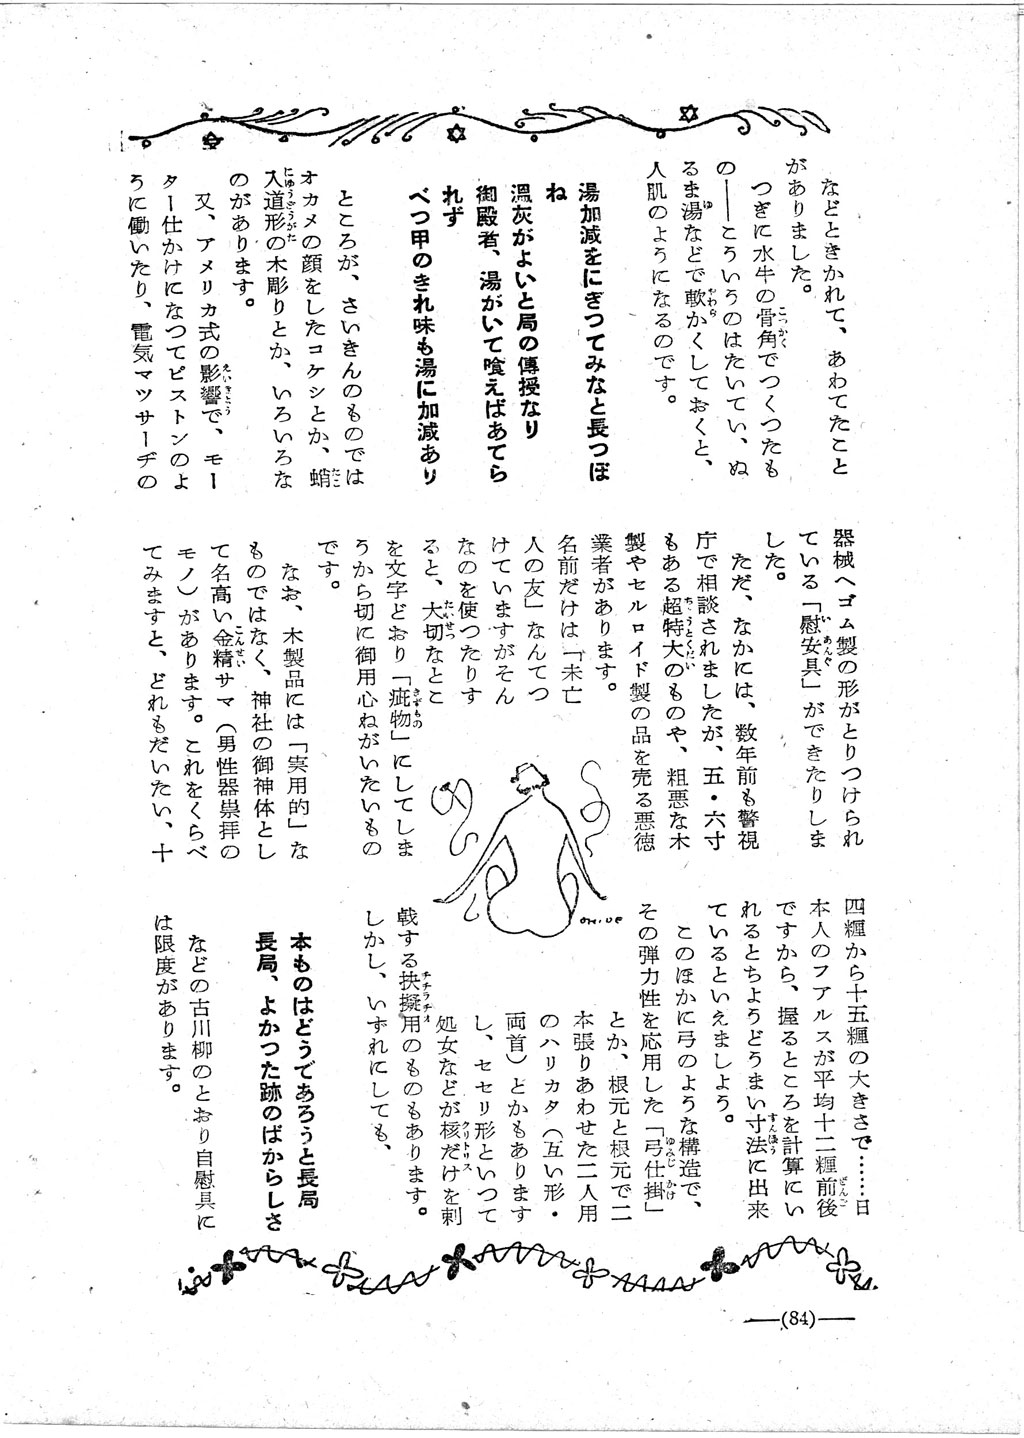 などときかれて、あわてたこと
がありました。
つぎに水牛の骨角でつくつたも
の――こういうのはたいてい、ぬ
るま湯などで軟かくしておくと、
人肌のようになるのです。
湯加減をにぎつてみなと長つぼ
ね
温灰がよいと局の傳授なり
御殿者、湯がいて喰えばあてら
れず
べつ甲のきれ味も湯に加減あり
ところが、さいきんのものでは
オカメの顔をしたコケシとか、蛸
入道形の木彫りとか、いろいろな
のがあります。
又、アメリカ式の影響で、モー
ター仕かけになつてピストンのよ
うに働いたり、電気マツサーヂの
器械へゴム製の形がとりつけられ
ている「慰安具」ができたりしま
した。
ただ、なかには、数年前も警視
庁で相談されましたが、五・六寸
もある超特大のものや、粗悪な木
製やセルロイド製の品を売る悪徳
業者があります。
名前だけは「未亡
人の友」なんてつ
けていますがそん
なのを使つたりす
ると、大切なとこ
を文字どおり「疵物」にしてしま
うから切に御用心ねがいたいもの
です。
なお、木製品には「実用的」な
ものではなく、神社の御神体とし
て名高い金精サマ（男性器崇拝の
モノ）があります。これをくらべ
てみますと、どれもだいたい、十
四糎から十五糎の大きさで……日
本人のフアルスが平均十二糎前後
ですから、握るところを計算にい
れるとちようどうまい寸法に出来
ているといえましよう。
このほかに弓のような構造で、
その弾力性を応用した「弓仕掛」
とか、根元と根元で二
本張りあわせた二人用
のハリカタ（互い形・
両首）とかもあります
し、セセリ形といつて
処女などが核だけを刺
戟する挾擬用のものもあります。
しかし、いずれにしても、
本ものはどうであろうと長局
長局、よかつた跡のばからしさ
などの古川柳のとおり自慰具に
は限度があります。
(84)